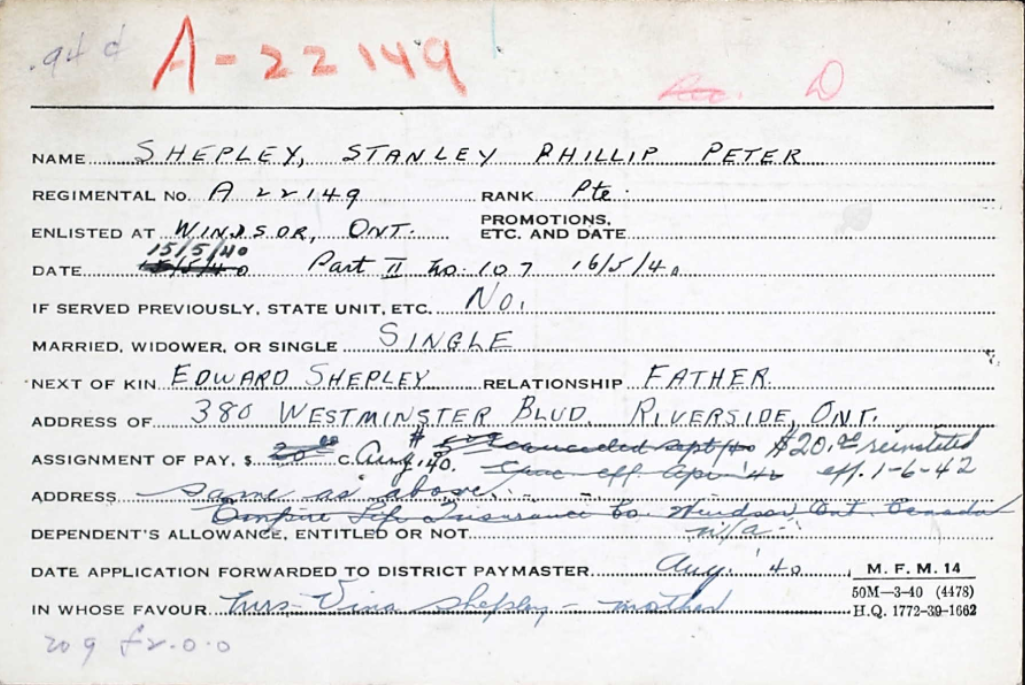 .94 d A-22149
D
NAME SHEPLEY, STANLEY PHILLIP PETER
REGIMENTAL NO. A 22149 RANK Pte.
ENLISTED AT WINDSOR, ONT. PROMOTIONS, ETC. AND DATE
15/5/40
DATE 15/5/40 Part II No. 107 16/5/40
IF SERVED PREVIOUSLY, STATE UNIT, ETC. No.
MARRIED, WIDOWER, OR SINGLE SINGLE
NEXT OF KIN EDWARD SHEPLEY RELATIONSHIP FATHER.
ADDRESS OF 380 WESTMINSTER BLVD. RIVERSIDE, ONT.
ASSIGNMENT OF PAY, $ 20.00 C. Aug. 40. $ cancelled Sept/40 $20.00 reinstated
eff. eff. 1-6-42
ADDRESS same as above.
Empire Life Insurance Co. Windsor Ont. Canada
DEPENDENT'S ALLOWANCE, ENTITLED OR NOT n/a
DATE APPLICATION FORWARDED TO DISTRICT PAYMASTER Aug. '40
M. F. M. 14
IN WHOSE FAVOUR Mrs. Vina Shepley - mother
50M—3-40 (4478)
H.Q. 1772-39-1662
20 9 £2.0.0